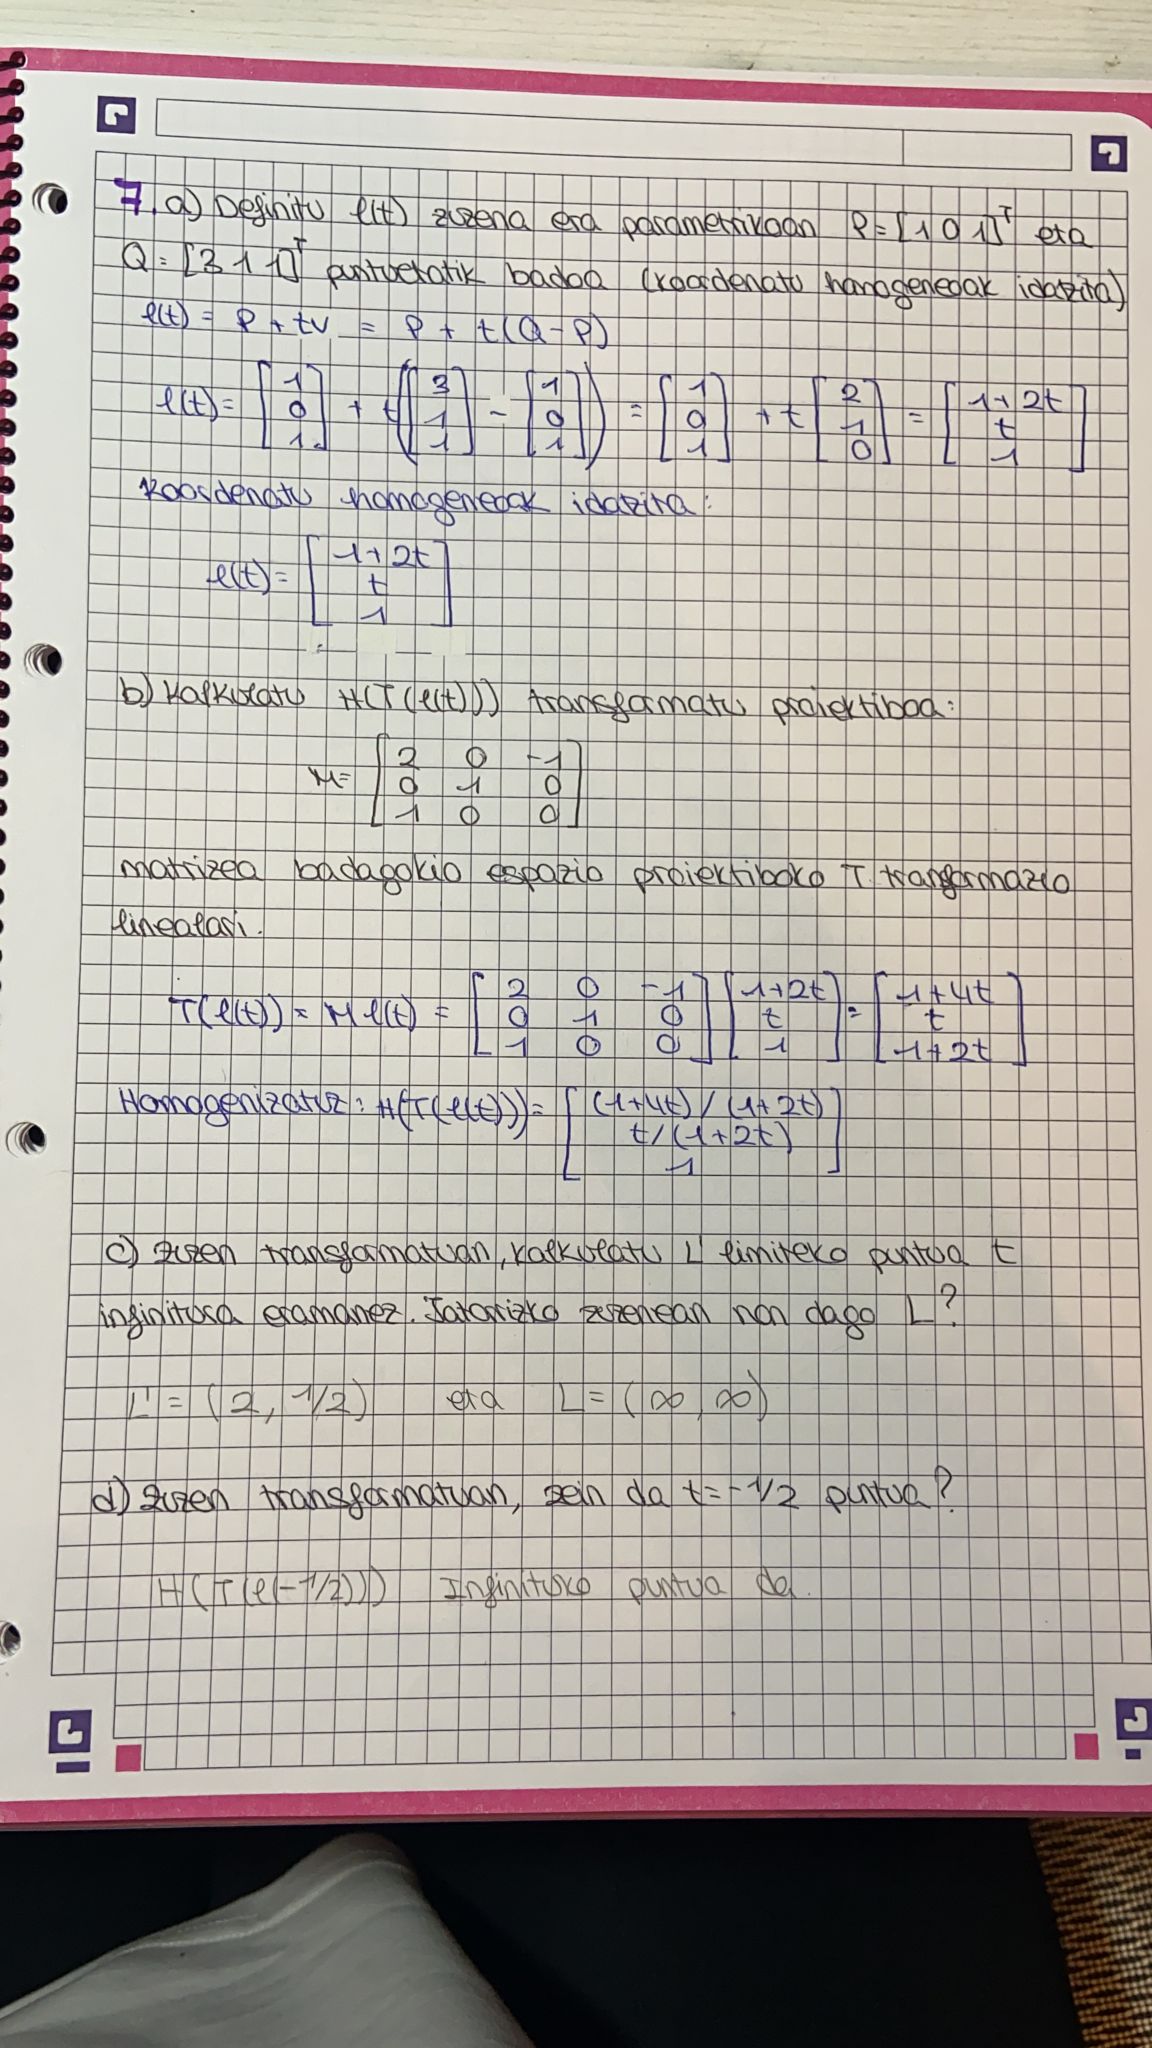 7. a) Definitu l(t) zuzena era parametrikoan P=[1 0 1]ᵀ eta
Q=[3 1 1]ᵀ puntuetatik badoa (koordenatu homogeneoak idatzita)
l(t) = P + tv = P + t(Q-P)
l(t) = [1 0 1] + t([3 1 1] - [1 0 1]) = [1 0 1] + t[2 1 0] = [1+2t t 1]
Koordenatu homogeneoak idatzita:
l(t) = [1+2t t 1]
b) Kalkulatu H(T(l(t))) transformatu proiektiboa:
M = [2 0 -1
0 1 0
1 0 0]
matrizea badagokio espazio proiektiboko T tranformazio
linealari.
T(l(t)) = M l(t) = [2 0 -1; 0 1 0; 1 0 0] [1+2t t 1] = [1+4t t 1+2t]
Homogenizatuz: H(T(l(t))) = [(1+4t)/(1+2t) t/(1+2t) 1]
c) Zuzen transformatuan, kalkulatu L' limiteko puntua t
infinitura eramanez. Jatorrizko zuzenean non dago L?
L' = (2, 1/2) eta L = (∞, ∞)
d) Zuzen transformatuan, zein da t=-1/2 puntua?
H(T(l(-1/2))) Infinituko puntua da.